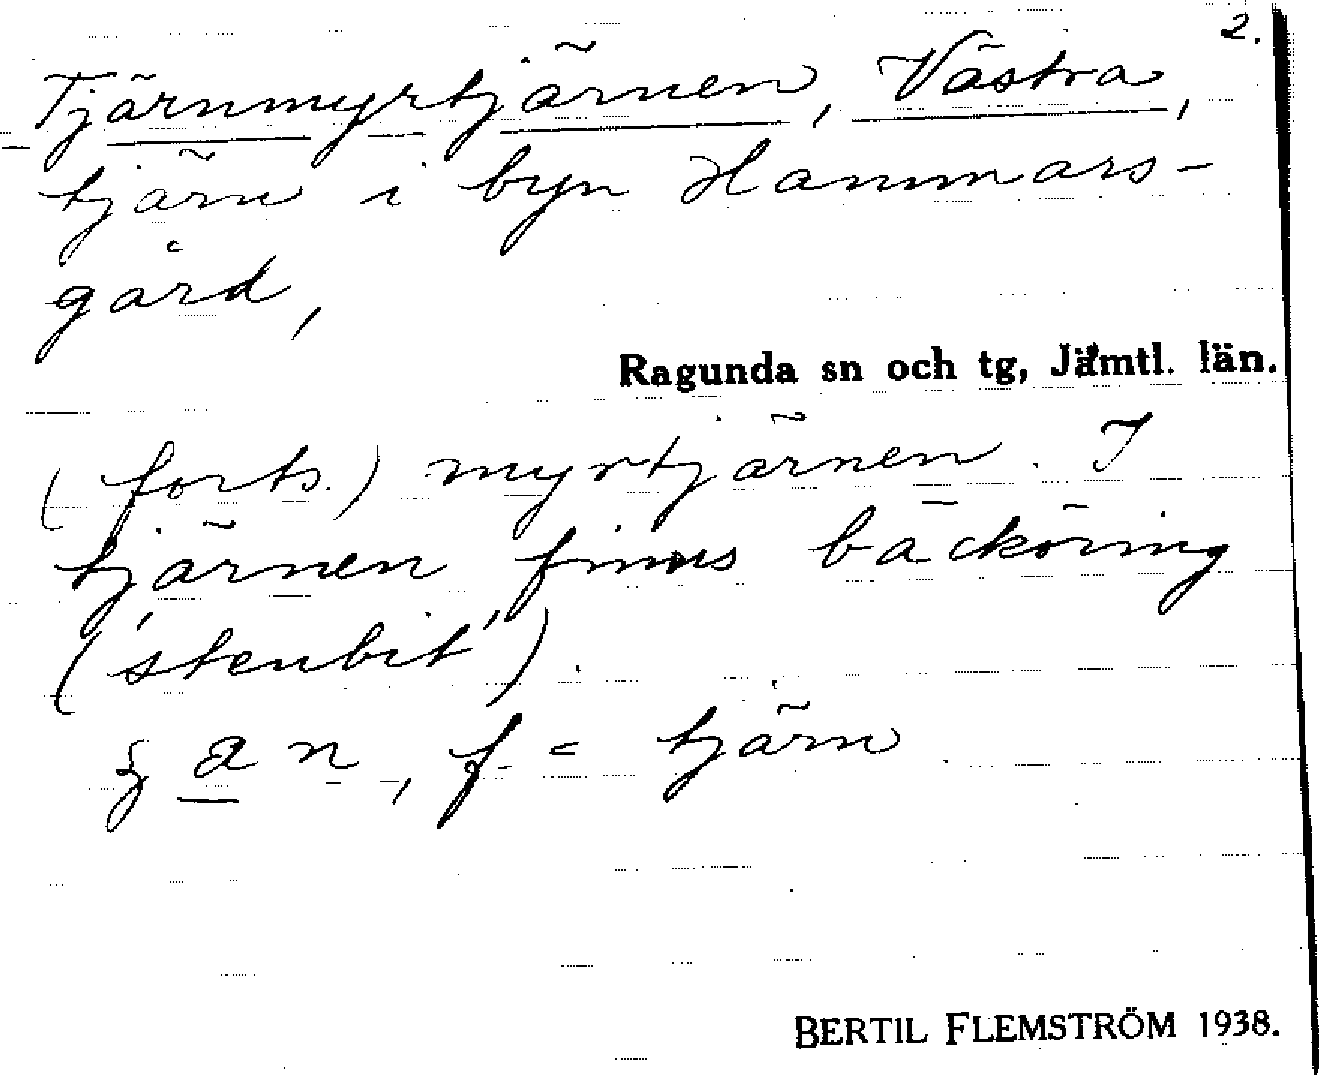 2.
Tjärnmyrtjärnen, Västra,
tjärn i byn Hammars-
gård,
Ragunda sn och tg, Jämtl. län.
(forts.) myrtjärnen. I
tjärnen finns bäcköring
('stenbit').
f = tjärn
BERTIL FLEMSTRÖM 1938.